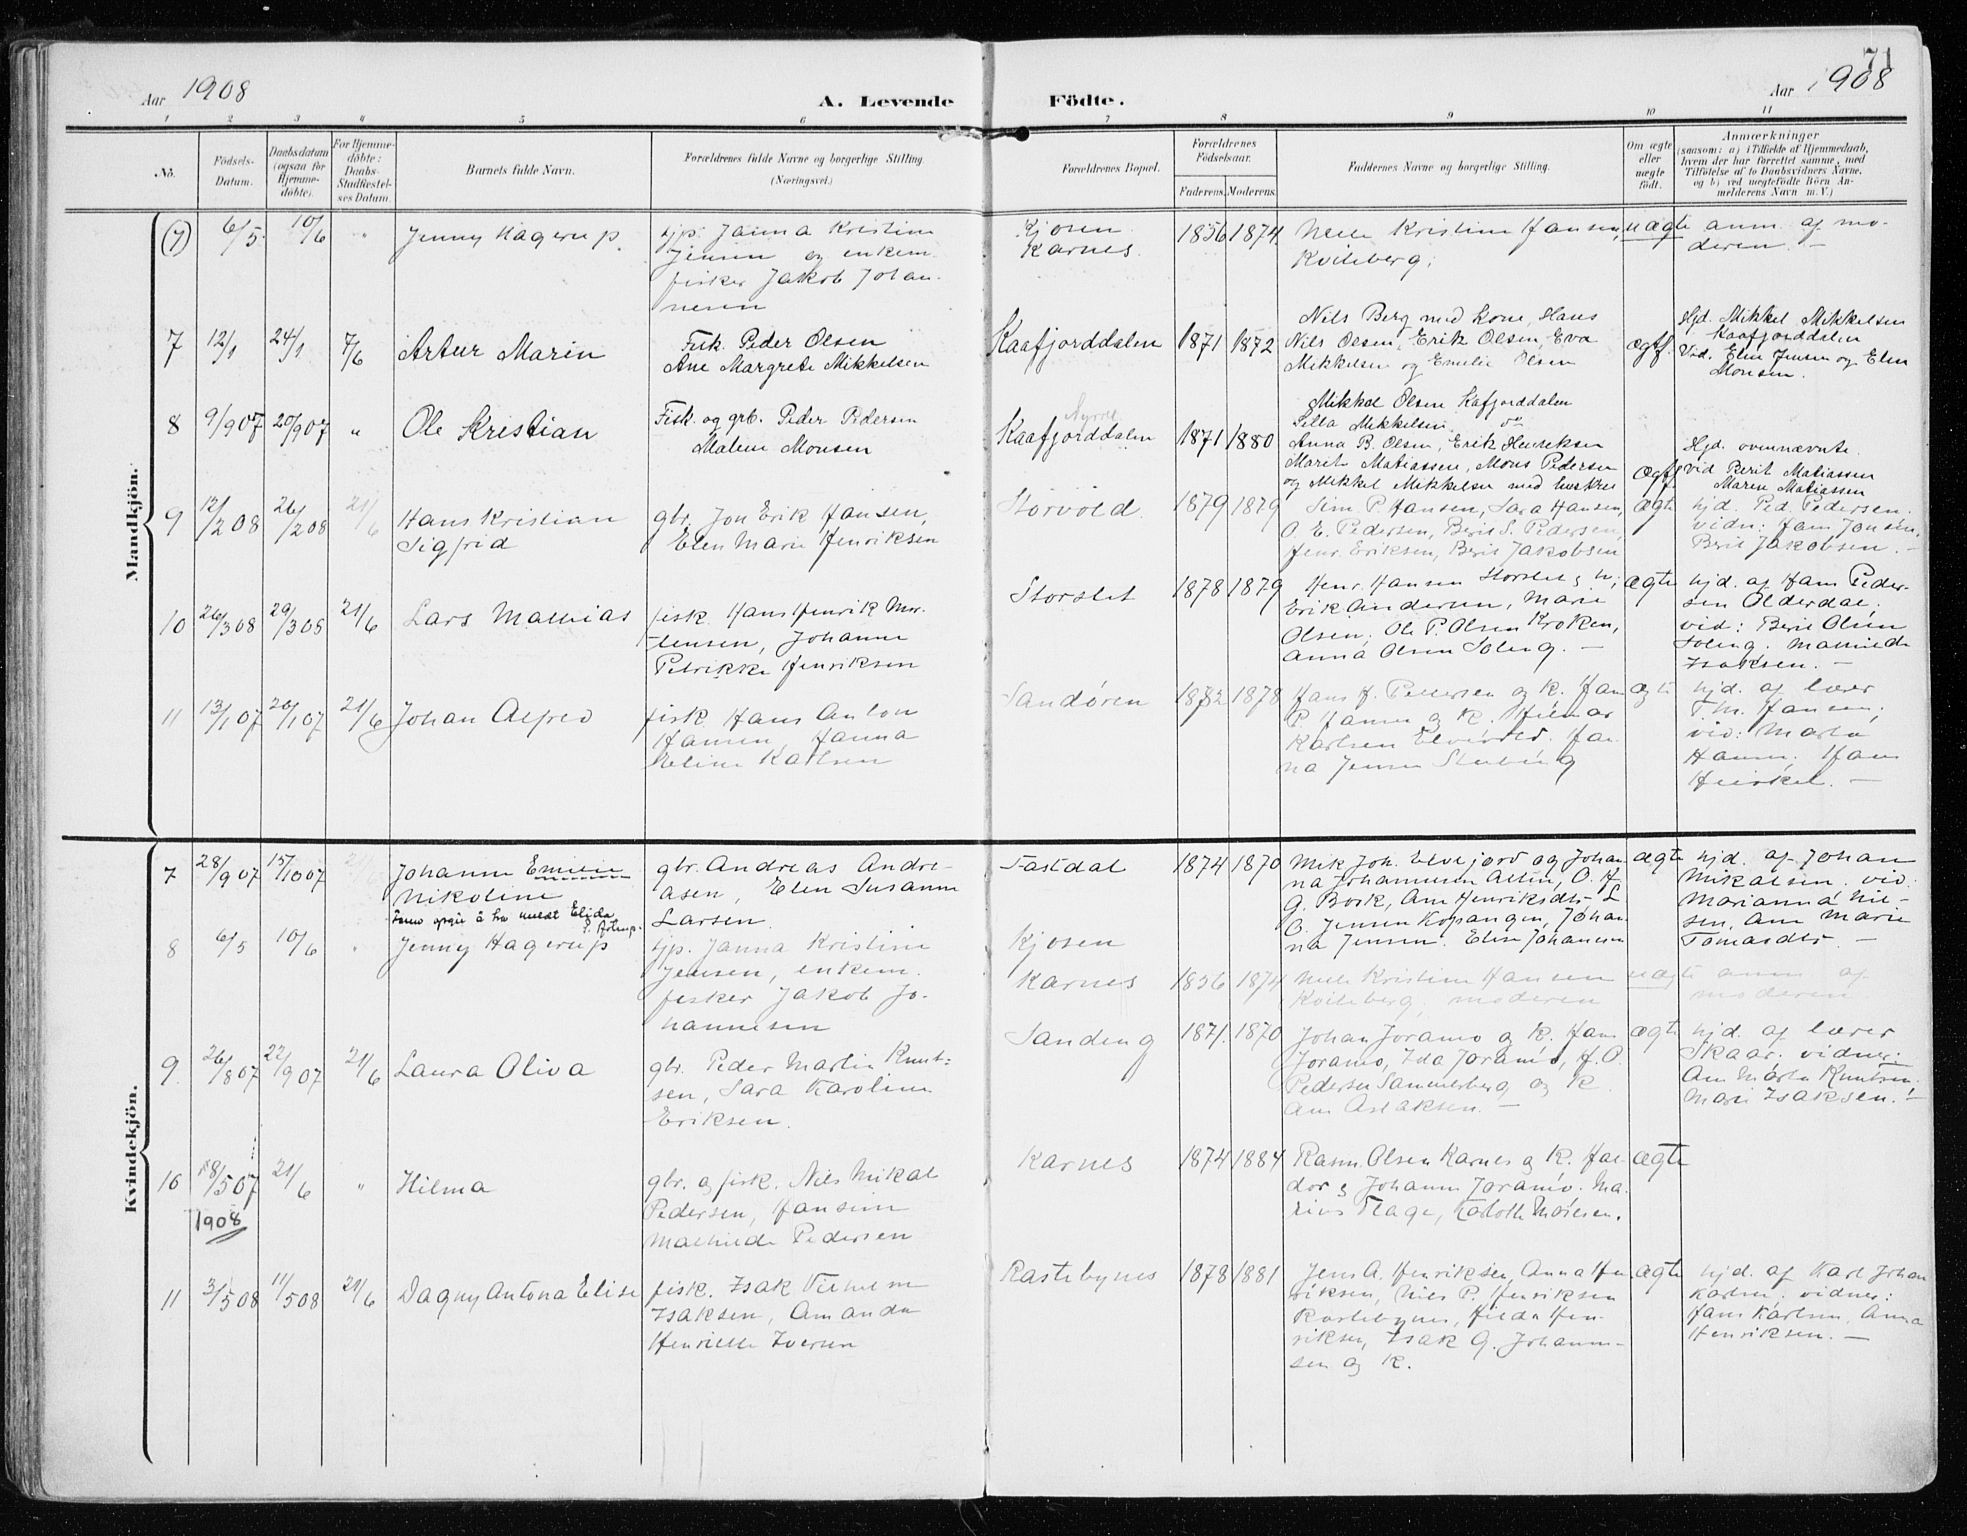 71
Aar 1908
A. Levende Födte.
Aar 1908
1 2 3 4 5 6 7 8 9 10 11
No.
Födsels-Datum.
Daabsdatum (ogsaa for Hjemmedöbte).
For Hjemmedöbte: Daabs-Stadfæstelses Datum.
Barnets fulde Navn.
Forældrenes fulde Navne og borgerlige Stilling.
(Næringsvei.)
Forældrenes Bopæl.
Forældrenes Födselsaar.
Faderens. Moderens.
Faddernes Navne og borgerlige Stilling.
Om ægte eller uægte födt.
Anmærkninger
(saasom: a) i Tilfælde af Hjemmedaab, hvem der har forrettet samme, med Tilföielse af to Daabsvidners Navne, og b) ved uægtefödte Börn Anmelderens Navn m. V.)
Mandkjön.
(7) 6/5 10/6 " Jenny Hagerup. pp. Janna Kristine
Jensen og enkem.
fisker Jakob Johan-
nesen
Kjosen
Karnes 1856 1874 Nele Kristine Hansen,
Kvileberg; uægte anm. af mo-
deren. —
7 12/1 24/1 7/6 Artur Marin Fisk. Peder Olsen
Ane Margrete Mikkelsen
Kaafjorddalen 1871 1872 Nils Berg med kone, Hans
Nils Olsen, Erik Olsen, Eva
Mikkelsen og Emelie Olsen
ægtf. Hjd. Mikkel Mikkelsen
Kaafjorddalen
Vid. Elen Jensen og Elen
Monsen.
8 9/907 20/907 " Ole Kristian Fisk. og grb. Peder Pedersen
Malene Monsen
Kaafjorddalen 1871 1880 Mikkel Olsen Kafjorddalen
Mikkelsen
Anna B. Olsen, Erik Henriksen
Marit Matiassen, Mons Pedersen
og Mikkel Mikkelsen med hustru
ægtf Hjd. ovennævnte.
vid Berit Matiassen
Maren Matiassen
9 12/2 08 26/2 08 21/6 Hans Kristian
Sigfrid gbr. Jon Erik Hansen,
Elen Marie Henriksen
Storvold 1879 1879 Sim. P. Hansen, Sara Hansen,
O. E. Pedersen, Berit S. Pedersen,
Henr. Eriksen, Berit Jakobsen
ægte hjd. Ped. Pedersen.
vidn: Hans Jonsen,
Berit Jakobsen. —
10 26/308 29/308 21/6 Lars Mathias fisk. Hans Henrik Mor-
tensen, Johanne
Petrikke Henriksen
Storslet 1878 1879 Henr. Hansen Storslet
Erik Andersen, Marie
Olsen, Ole P. Olsen Kroken,
Anna Olsen Soleng. —
ægte hjd. af Hans Peder-
sen Olderdal.
vid: Berit Olsen
Soleng. Mathilde
Isaksen. —
11 13/107 20/107 21/6 Johan Alfred fisk Hans Anton
Hansen, Hanna
Karlsen
Sandören 1878 Hans H. Pettersen og K. Hans
P. Hansen og K. Hilmar
Karlsen Elvevold.
Jensen
ægte hjd. af lærer
Hansen,
vid: Marta
Hansen. Hans
Kvindekjön.
7 28/907 13/1007 Johanne Emilie
Nikoline
gbr. Andreas Andre-
asen, Elen Susanne
Larsen.
Fastdal 1874 1870 Mik Joh. og Johan-
na Johannesen
G. Bork, Ane Henriksdtr
O. Jensen Kopangen, Johan-
na Jensen. Elise Johansen
ægte hjd. af Johan
Mikalsen. vid:
Marianna Nil-
sen, Ane Marie
Tomasdtr. —
8 6/5 10/6 " Jenny Hagerup pp. Janna Kristine
Jensen, enkem.
fisker Jakob Jo-
hannesen
Kjosen
Karnes 1856 1874 Nele Kristine Hansen
Kvileberg, moderen
uægte anm af
moderen.
9 26/807 22/907 21/6 Laura Oliva gbr. Peder Martin Knut-
sen, Sara Karoline
Eriksen.
Sandeng 1871. 1870 Johan Joramo og K. Hans
Joramo, Ida Joramo, H. O.
Pedersen Sammerberg og K
Ane Aslaksen. —
ægte hjd. af lærer
Skaar. vidner:
Ane Marta Knutsen,
Marie Isaksen. —
10 18/507 21/6 " Hilma
1908
gbr. og fisk. Nils Mikal
Pedersen, Hansine
Mathilde Pedersen
Karnes 1874 1884 Rasm. Olsen Karnes og K. Hal-
dor og Johanne Joramo. Ma-
rius Flage, Karlotte Mortensen.
ægte
11 3/508 11/508 21/6 Dagny Antona Elise fisk. Isak Vilhelm
Isaksen, Amanda
Henriette Iversen
Rastebynes 1878 1881 Jens A. Henriksen, Anna Hen-
riksen, Nils P. Henriksen
Rastebynes, Hilda Hen-
riksen, Isak G. Johanne-
sen og K.
ægte hjd. af Karl Johan
Karlsen. vidner:
Hans Karlsen, Anna
Henriksen. —